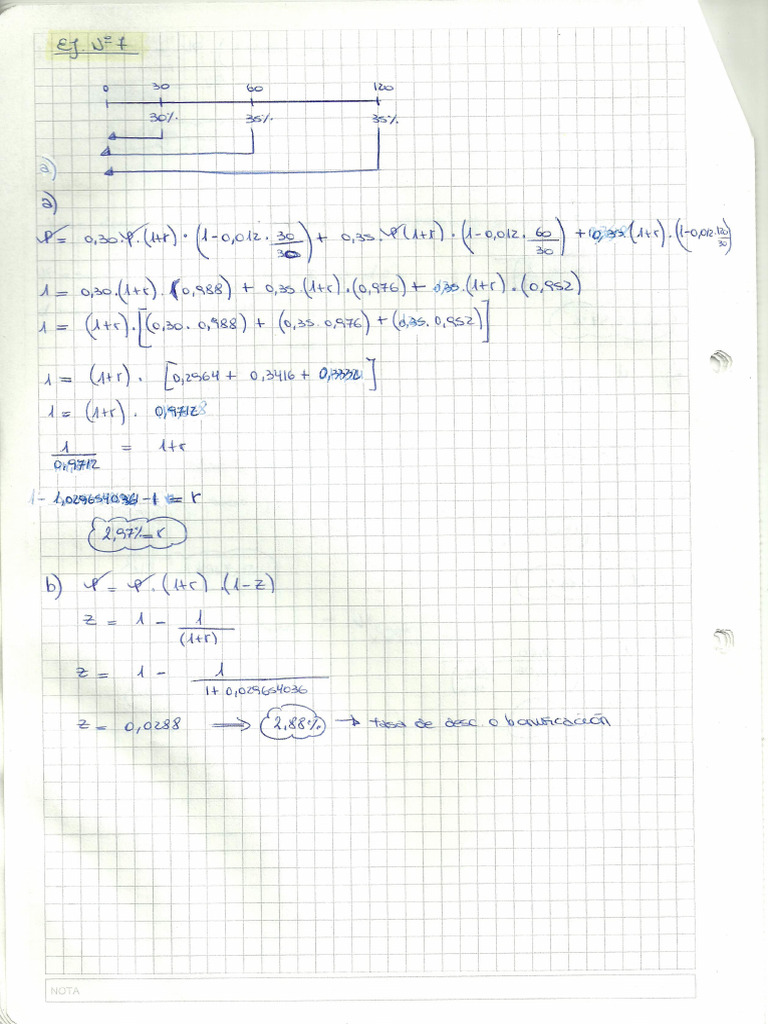 EJ. Nº 7
0 30 60 120
30% 35% 35%
a)
a)
P = 0,30.P.(1+r) . (1-0,012. 30/30) + 0,35. P(1+r) . (1-0,012. 60/30) + 0,35.(1+r).(1-0,012.120/30)
1 = 0,30.(1+r).(0,988) + 0,35.(1+r).(0,976) + 0,35.(1+r).(0,952)
1 = (1+r).[(0,30. 0,988) + (0,35. 0,976) + (0,35. 0,952)]
1 = (1+r) . [0,2964 + 0,3416 + 0,3332]
1 = (1+r) . 0,9712
1/0,9712 = 1+r
1,029654036 - 1 = r
2,97% = r
b) P = P . (1+r) . (1-z)
z = 1 - 1/(1+r)
z = 1 - 1/1+0,029654036
z = 0,0288 ⟹ 2,88% → tasa de desc o bonificación
NOTA